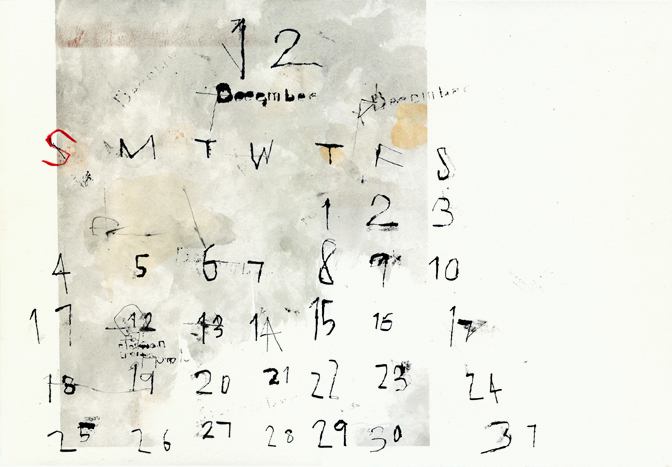 12
December
December
December
S M T W T F S
1 2 3
4 5 6 7 8 9 10
11 12 13 14 15 16 17
18 19 20 21 22 23 24
25 26 27 28 29 30 31